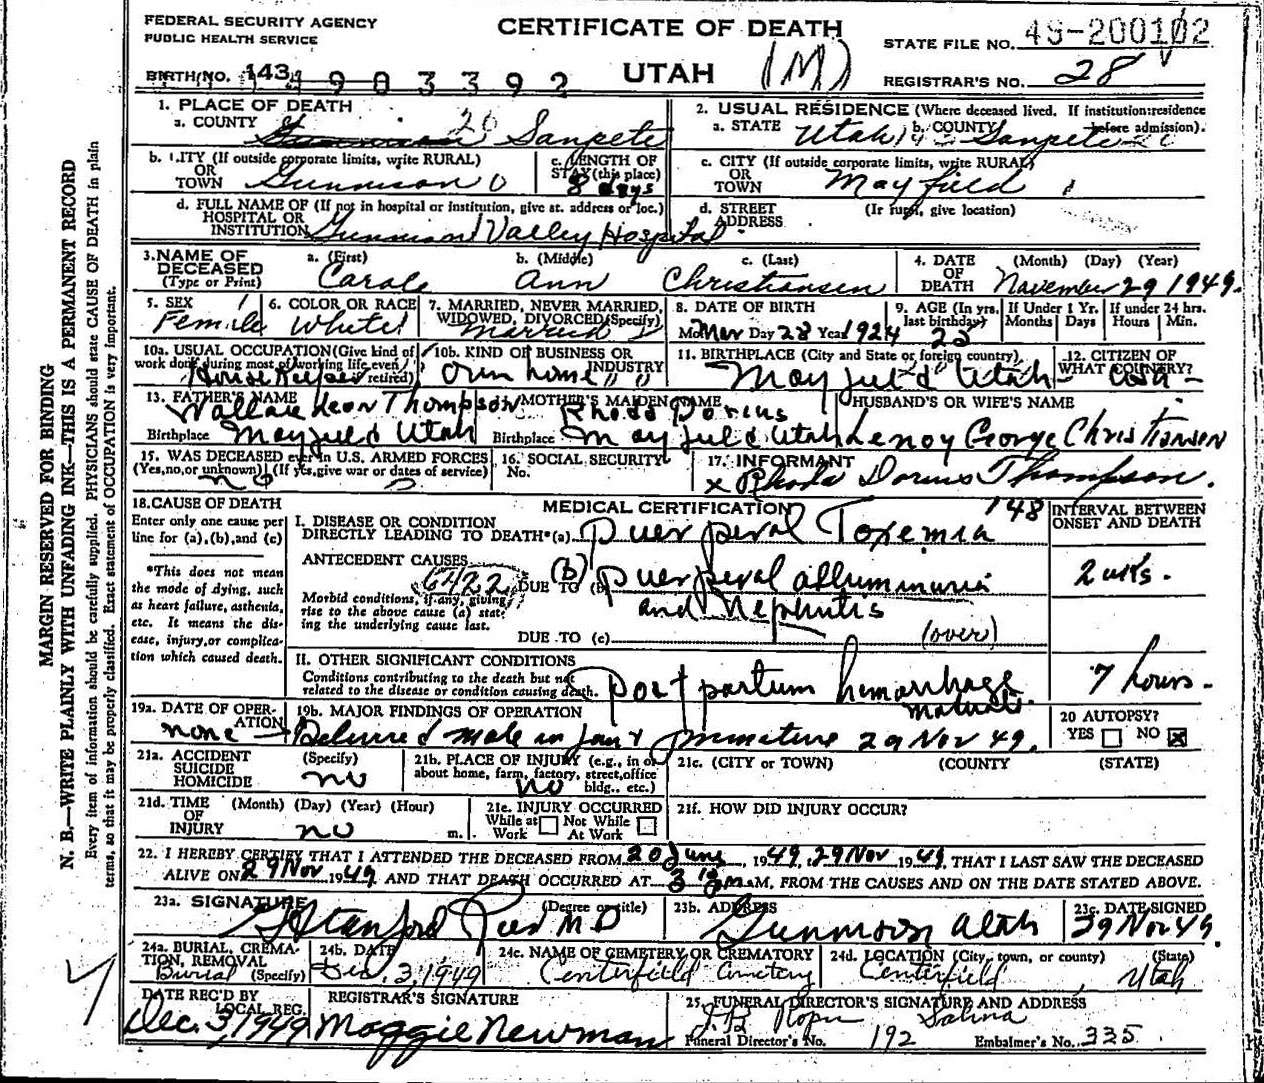 FEDERAL SECURITY AGENCY
PUBLIC HEALTH SERVICE
CERTIFICATE OF DEATH
STATE FILE NO. 49-200102
BIRTH NO. 143 4903392
UTAH (M)
REGISTRAR'S NO. 28
MARGIN RESERVED FOR BINDING
N. B.—WRITE PLAINLY WITH UNFADING INK—THIS IS A PERMANENT RECORD
Every item of information should be carefully supplied. PHYSICIANS should state CAUSE OF DEATH in plain
terms, so that it may be properly classified. Exact statement of OCCUPATION is very important.
1. PLACE OF DEATH
a. COUNTY 20 Sanpete
2. USUAL RESIDENCE (Where deceased lived. If institution: residence before admission).
a. STATE Utah b. COUNTY Sanpete
b. CITY (If outside corporate limits, write RURAL) OR TOWN Gunnison
c. LENGTH OF STAY (this place) 8 days
c. CITY (If outside corporate limits, write RURAL) OR TOWN Mayfield
d. FULL NAME OF (If not in hospital or institution, give st. address or loc.) HOSPITAL OR INSTITUTION Gunnison Valley Hospital
d. STREET ADDRESS (If rural, give location)
3. NAME OF DECEASED (Type or Print)
a. (First) Carole b. (Middle) Ann c. (Last) Christiansen
4. DATE OF DEATH (Month) (Day) (Year) November 29 1949.
5. SEX Female
6. COLOR OR RACE White
7. MARRIED, NEVER MARRIED, WIDOWED, DIVORCED (Specify) Married
8. DATE OF BIRTH Mo. Mar Day 28 Year 1924
9. AGE (In yrs. last birthday) 25
If Under 1 Yr. Months Days
If under 24 hrs. Hours Min.
10a. USUAL OCCUPATION (Give kind of work done during most of working life, even if retired) House Keeper
10b. KIND OF BUSINESS OR INDUSTRY Own home " "
11. BIRTHPLACE (City and State or foreign country) Mayfield Utah
12. CITIZEN OF WHAT COUNTRY? USA
13. FATHER'S NAME Wallace Leon Thompson
Birthplace Mayfield Utah
MOTHER'S MAIDEN NAME Rhoda Dorius
Birthplace Mayfield Utah
HUSBAND'S OR WIFE'S NAME
Leroy George Christiansen
15. WAS DECEASED ever in U.S. ARMED FORCES
(Yes, no, or unknown) (If yes, give war or dates of service) no
16. SOCIAL SECURITY No.
17. INFORMANT
x Rhoda Dorius Thompson.
18. CAUSE OF DEATH
Enter only one cause per line for (a), (b), and (c)
*This does not mean the mode of dying, such as heart failure, asthenia, etc. It means the disease, injury, or complication which caused death.
MEDICAL CERTIFICATION 148
INTERVAL BETWEEN ONSET AND DEATH
I. DISEASE OR CONDITION DIRECTLY LEADING TO DEATH*(a) Puerperal Toxemia
ANTECEDENT CAUSES 6422
Morbid conditions, if any, giving rise to the above cause (a) stating the underlying cause last.
DUE TO (b) Puerperal albuminuria and Nephritis
2 wks.
DUE TO (c) (over)
II. OTHER SIGNIFICANT CONDITIONS
Conditions contributing to the death but not related to the disease or condition causing death.
Post partum hemorrhage
7 hours.
19a. DATE OF OPERATION none
19b. MAJOR FINDINGS OF OPERATION
Delivered male infant premature 29 Nov 49.
20 AUTOPSY?
YES ☐ NO ☒
21a. ACCIDENT SUICIDE HOMICIDE (Specify) no
21b. PLACE OF INJURY (e.g., in or about home, farm, factory, street, office bldg., etc.) no
21c. (CITY or TOWN) (COUNTY) (STATE)
21d. TIME OF INJURY (Month) (Day) (Year) (Hour) no m.
21e. INJURY OCCURRED
While at Work ☐ Not While At Work ☐
21f. HOW DID INJURY OCCUR?
22. I HEREBY CERTIFY THAT I ATTENDED THE DECEASED FROM 20 June, 1949, 29 Nov 1949. THAT I LAST SAW THE DECEASED
ALIVE ON 29 Nov 1949 AND THAT DEATH OCCURRED AT 3 M, FROM THE CAUSES AND ON THE DATE STATED ABOVE.
23a. SIGNATURE (Degree or title)
G Stanford Rees M D
23b. ADDRESS
Gunnison Utah
23c. DATE SIGNED
29 Nov 49.
24a. BURIAL, CREMATION, REMOVAL (Specify) Burial
24b. DATE
Dec. 3, 1949
24c. NAME OF CEMETERY OR CREMATORY
Centerfield Cemetery
24d. LOCATION (City, town, or county) (State)
Centerfield, Utah
DATE REC'D BY LOCAL REG.
Dec. 3, 1949
REGISTRAR'S SIGNATURE
Maggie Newman
25. FUNERAL DIRECTOR'S SIGNATURE AND ADDRESS
Salina
Funeral Director's No. 192 Embalmer's No. 335